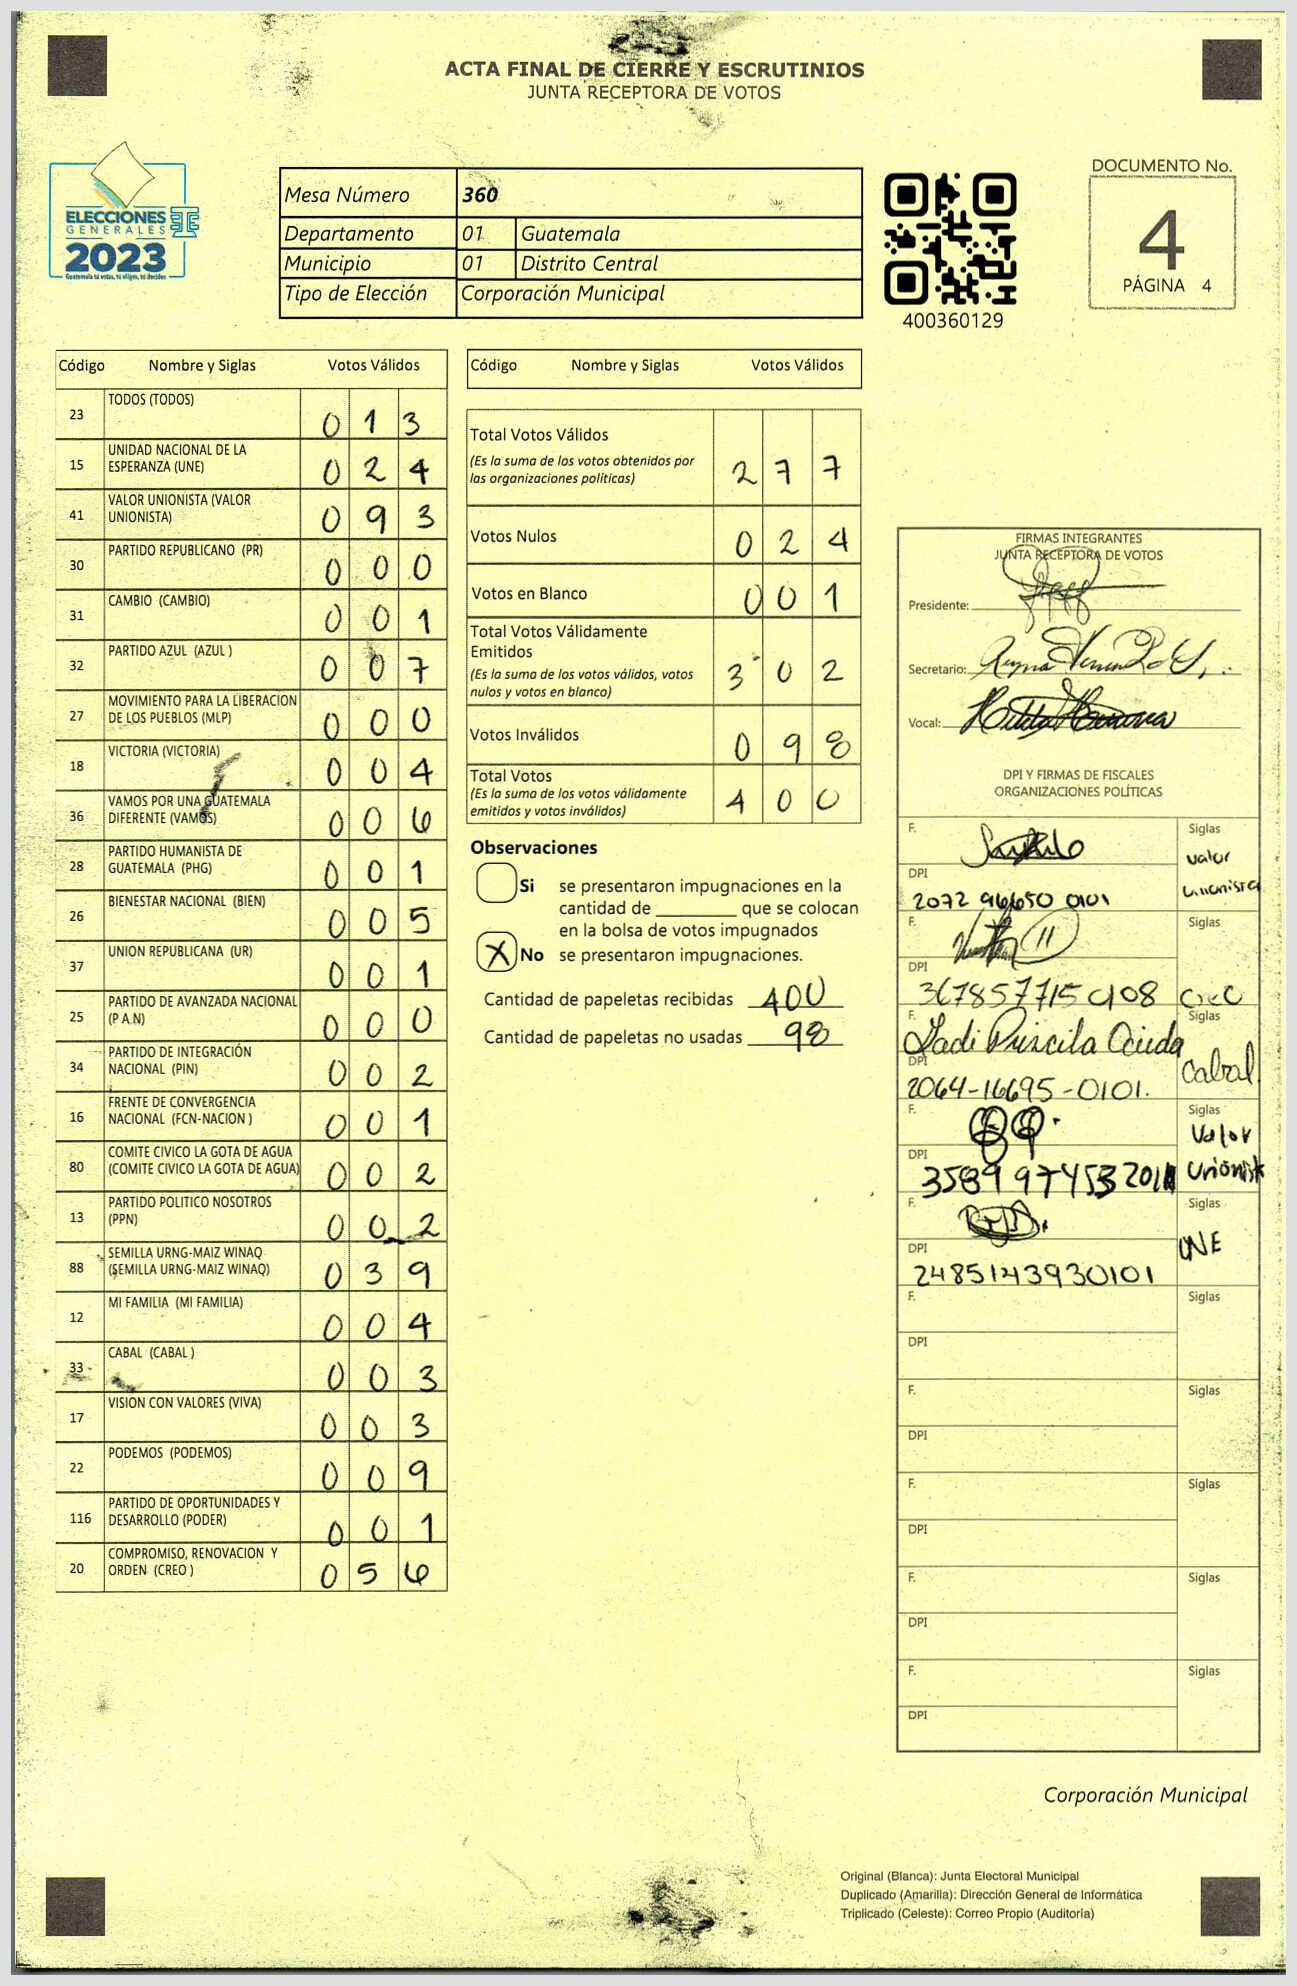 ACTA FINAL DE CIERRE Y ESCRUTINIOS
JUNTA RECEPTORA DE VOTOS
ELECCIONES
GENERALES
2023
Guatemala tú votas, tú eliges, tú decides
Mesa Número 360
Departamento 01 Guatemala
Municipio 01 Distrito Central
Tipo de Elección Corporación Municipal
400360129
DOCUMENTO No.
4
PÁGINA 4
Código Nombre y Siglas Votos Válidos
23 TODOS (TODOS) 0 1 3
15 UNIDAD NACIONAL DE LA ESPERANZA (UNE) 0 2 4
41 VALOR UNIONISTA (VALOR UNIONISTA) 0 9 3
30 PARTIDO REPUBLICANO (PR) 0 0 0
31 CAMBIO (CAMBIO) 0 0 1
32 PARTIDO AZUL (AZUL ) 0 0 7
27 MOVIMIENTO PARA LA LIBERACION DE LOS PUEBLOS (MLP) 0 0 0
18 VICTORIA (VICTORIA) 0 0 4
36 VAMOS POR UNA GUATEMALA DIFERENTE (VAMOS) 0 0 6
28 PARTIDO HUMANISTA DE GUATEMALA (PHG) 0 0 1
26 BIENESTAR NACIONAL (BIEN) 0 0 5
37 UNION REPUBLICANA (UR) 0 0 1
25 PARTIDO DE AVANZADA NACIONAL (P A.N) 0 0 0
34 PARTIDO DE INTEGRACIÓN NACIONAL (PIN) 0 0 2
16 FRENTE DE CONVERGENCIA NACIONAL (FCN-NACION ) 0 0 1
80 COMITE CIVICO LA GOTA DE AGUA (COMITE CIVICO LA GOTA DE AGUA) 0 0 2
13 PARTIDO POLITICO NOSOTROS (PPN) 0 0 2
88 SEMILLA URNG-MAIZ WINAQ (SEMILLA URNG-MAIZ WINAQ) 0 3 9
12 MI FAMILIA (MI FAMILIA) 0 0 4
33 CABAL (CABAL ) 0 0 3
17 VISION CON VALORES (VIVA) 0 0 3
22 PODEMOS (PODEMOS) 0 0 9
116 PARTIDO DE OPORTUNIDADES Y DESARROLLO (PODER) 0 0 1
20 COMPROMISO, RENOVACION Y ORDEN (CREO ) 0 5 6
Código Nombre y Siglas Votos Válidos
Total Votos Válidos 2 7 7
(Es la suma de los votos obtenidos por
las organizaciones políticas)
Votos Nulos 0 2 4
Votos en Blanco 0 0 1
Total Votos Válidamente
Emitidos 3 0 2
(Es la suma de los votos válidos, votos
nulos y votos en blanco)
Votos Inválidos 0 9 8
Total Votos 4 0 0
(Es la suma de los votos válidamente
emitidos y votos inválidos)
Observaciones
Si se presentaron impugnaciones en la
cantidad de ________ que se colocan
en la bolsa de votos impugnados
X No se presentaron impugnaciones.
Cantidad de papeletas recibidas 400
Cantidad de papeletas no usadas 98
FIRMAS INTEGRANTES
JUNTA RECEPTORA DE VOTOS
Presidente:
Secretario:
Vocal:
DPI Y FIRMAS DE FISCALES
ORGANIZACIONES POLÍTICAS
F. Siglas valor unionista
DPI 2072 96650 0101
F. Siglas Creo
DPI 367857715 0108
F. Siglas Cabal
DPI 2064-16695-0101.
F. Siglas Valor Unionist
DPI 3589 97453 201
F. Siglas UNE
DPI 2485143930101
F. Siglas
DPI
F. Siglas
DPI
F. Siglas
DPI
F. Siglas
DPI
F. Siglas
DPI
Corporación Municipal
Original (Blanca): Junta Electoral Municipal
Duplicado (Amarilla): Dirección General de Informática
Triplicado (Celeste): Correo Propio (Auditoría)